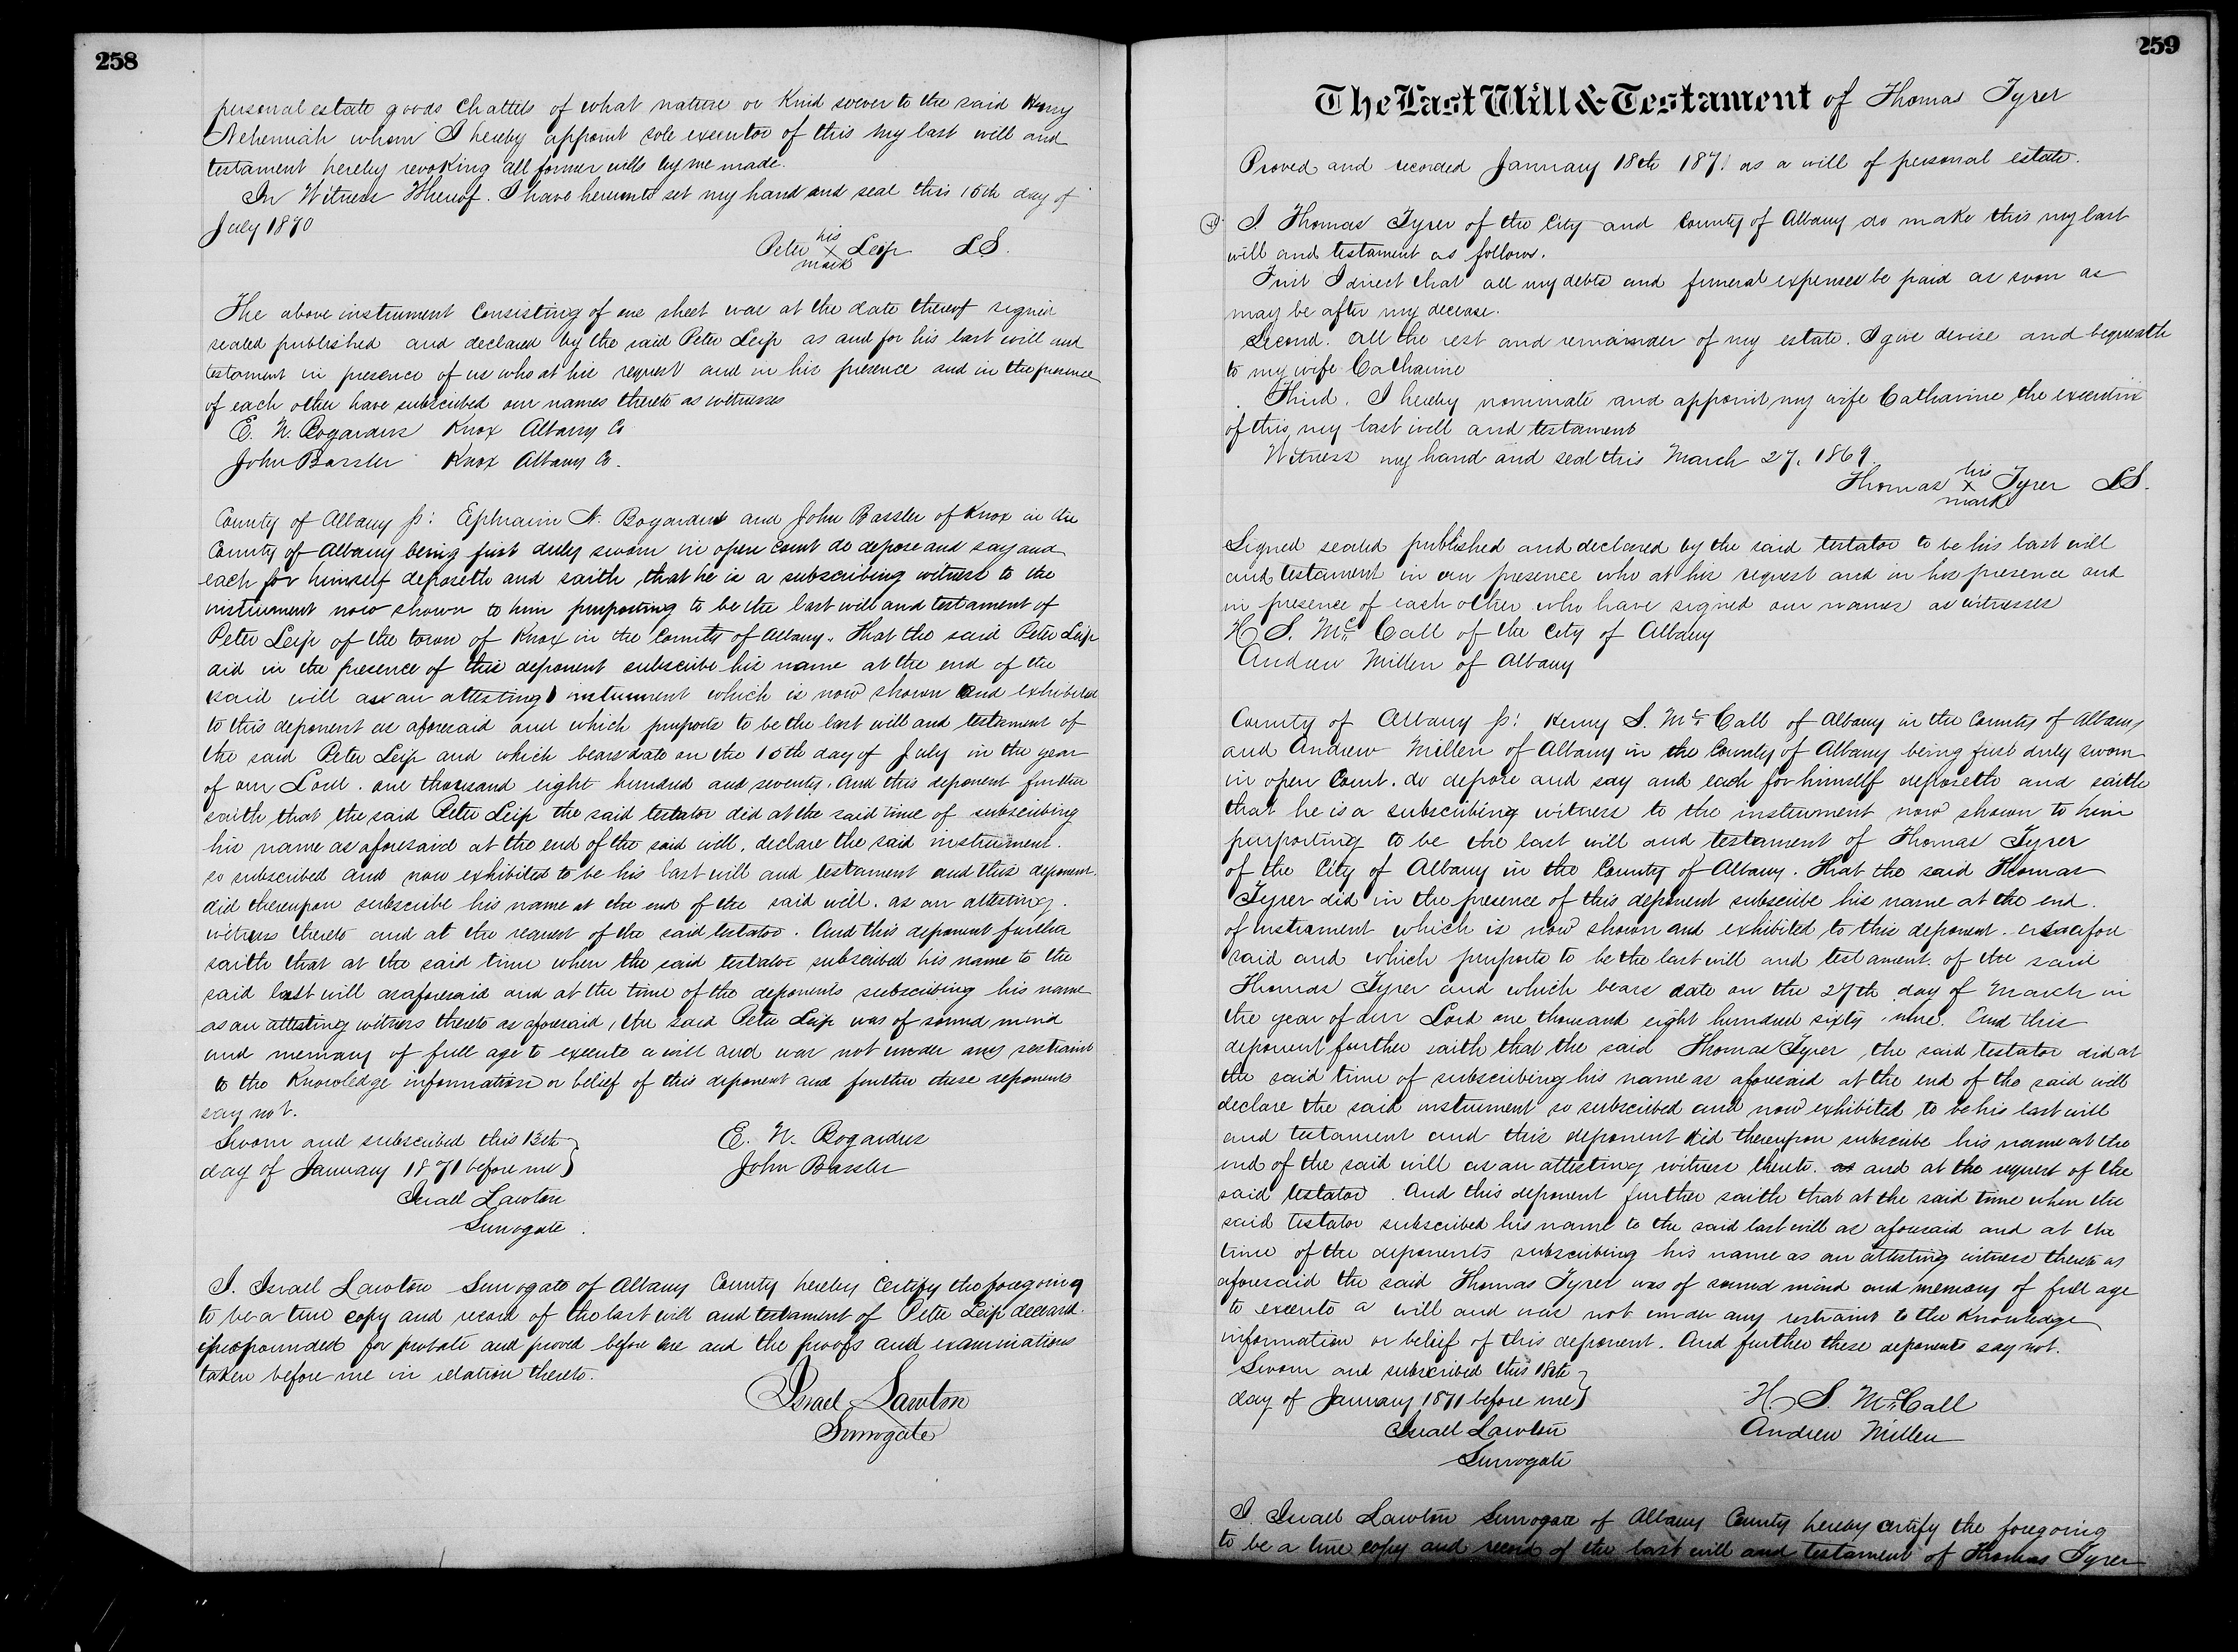 258
personal estate goods chattels of what nature or Kind soever to the said Henry
Nehemiah whom I hereby appoint sole executor of this my last will and
testament hereby revoking all former wills by me made.
In Witness Whereof. I have hereunto set my hand and seal this 15th day of
July 1870
his
Peter X Leip L.S.
mark
The above instrument consisting of one sheet was at the date thereof signed
sealed published and declared by the said Peter Leip as and for his last will and
testament in presence of us who at his request and in his presence and in the presence
of each other have subscribed our names thereto as witnesses
E. N. Bogardus Knox Albany Co
John Bassler Knox Albany Co.
County of Albany ss: Ephraim N. Bogardus and John Bassler of Knox in the
County of Albany being first duly sworn in open Court do depose and say and
each for himself deposeth and saith, that he is a subscribing witness to the
instrument now shown to him purporting to be the last will and testament of
Peter Leip of the town of Knox in the County of Albany. That the said Peter Leip
did in the presence of this deponent subscribe his name at the end of the
said will as an attesting instrument which is now shown and exhibited
to this deponent as aforesaid and which purports to be the last will and testament of
the said Peter Leip and which bears date on the 15th day of July in the year
of our Lord. one thousand eight hundred and seventy. And this deponent further
saith that the said Peter Leip the said testator did at the said time of subscribing
his name as aforesaid at the end of the said will, declare the said instrument.
so subscribed and now exhibited to be his last will and testament and this deponent.
did thereupon subscribe his name at the end of the said will. as an attesting.
witness thereto and at the request of the said testator. And this deponent further
saith that at the said time when the said testator subscribed his name to the
said last will as aforesaid and at the time of the deponents subscribing his name
as an attesting witness thereto as aforesaid, the said Peter Leip was of sound mind
and memory of full age to execute a will and was not under any restraint
to the Knowledge information or belief of this deponent and further these deponents
say not.
Sworn and subscribed this 13th
day of January 1871 before me
Israel Lawton
Surrogate.
E. N. Bogardus
John Bassler
I. Israel Lawton Surrogate of Albany County hereby Certify the foregoing
to be a true copy and record of the last will and testament of Peter Leip deceased.
propounded for probate and proved before me and the proofs and examinations
taken before me in relation thereto.
Israel Lawton
Surrogate
259
The Last Will & Testament of Thomas Tyrer
Proved and recorded January 18th 1871 as a will of personal estate.
I. Thomas Tyrer of the City and County of Albany do make this my last
will and testament as follows.
First I direct that all my debts and funeral expenses be paid as soon as
may be after my decease.
Second. All the rest and remainder of my estate. I give devise and bequeath
to my wife Catharine
Third. I hereby nominate and appoint my wife Catharine the executrix
of this my last will and testament
Witness my hand and seal this March 27. 1869.
his
Thomas X Tyrer LS.
mark
Signed sealed published and declared by the said testator to be his last will
and testament in our presence who at his request and in his presence and
in presence of each other who have signed our names as witnesses
H. S. McCall of the City of Albany
Andrew Millen of Albany
County of Albany ss: Henry S. McCall of Albany in the County of Albany
and Andrew Millen of Albany in the County of Albany being first duly sworn
in open Court. do depose and say and each for himself deposeth and saith
that he is a subscribing witness to the instrument now shown to him
purporting to be the last will and testament of Thomas Tyrer
of the City of Albany in the County of Albany. That the said Thomas
Tyrer did in the presence of this deponent subscribe his name at the end.
of instrument which is now shown and exhibited to this deponent. as afore
said and which purports to be the last will and testament. of the said
Thomas Tyrer and which bears date on the 27th day of March in
the year of our Lord one thousand eight hundred sixty nine. And this
deponent further saith that the said Thomas Tyrer, the said testator did at
the said time of subscribing his name as aforesaid at the end of the said will
declare the said instrument so subscribed and now exhibited to be his last will
and testament and this deponent did thereupon subscribe his name at the
end of the said will as an attesting witness thereto. as and at the request of the
said testator. And this deponent further saith that at the said time when the
said testator subscribed his name to the said last will as aforesaid and at the
time of the deponents subscribing his name as an attesting witness thereto as
aforesaid the said Thomas Tyrer was of sound mind and memory of full age
to execute a will and was not under any restraint to the Knowledge
information or belief of this deponent. And further these deponents say not.
Sworn and subscribed this 18th
day of January 1871 before me
Israel Lawton
Surrogate
H. S. McCall
Andrew Millen
I. Israel Lawton Surrogate of Albany County hereby certify the foregoing
to be a true copy and record of the last will and testament of Thomas Tyrer